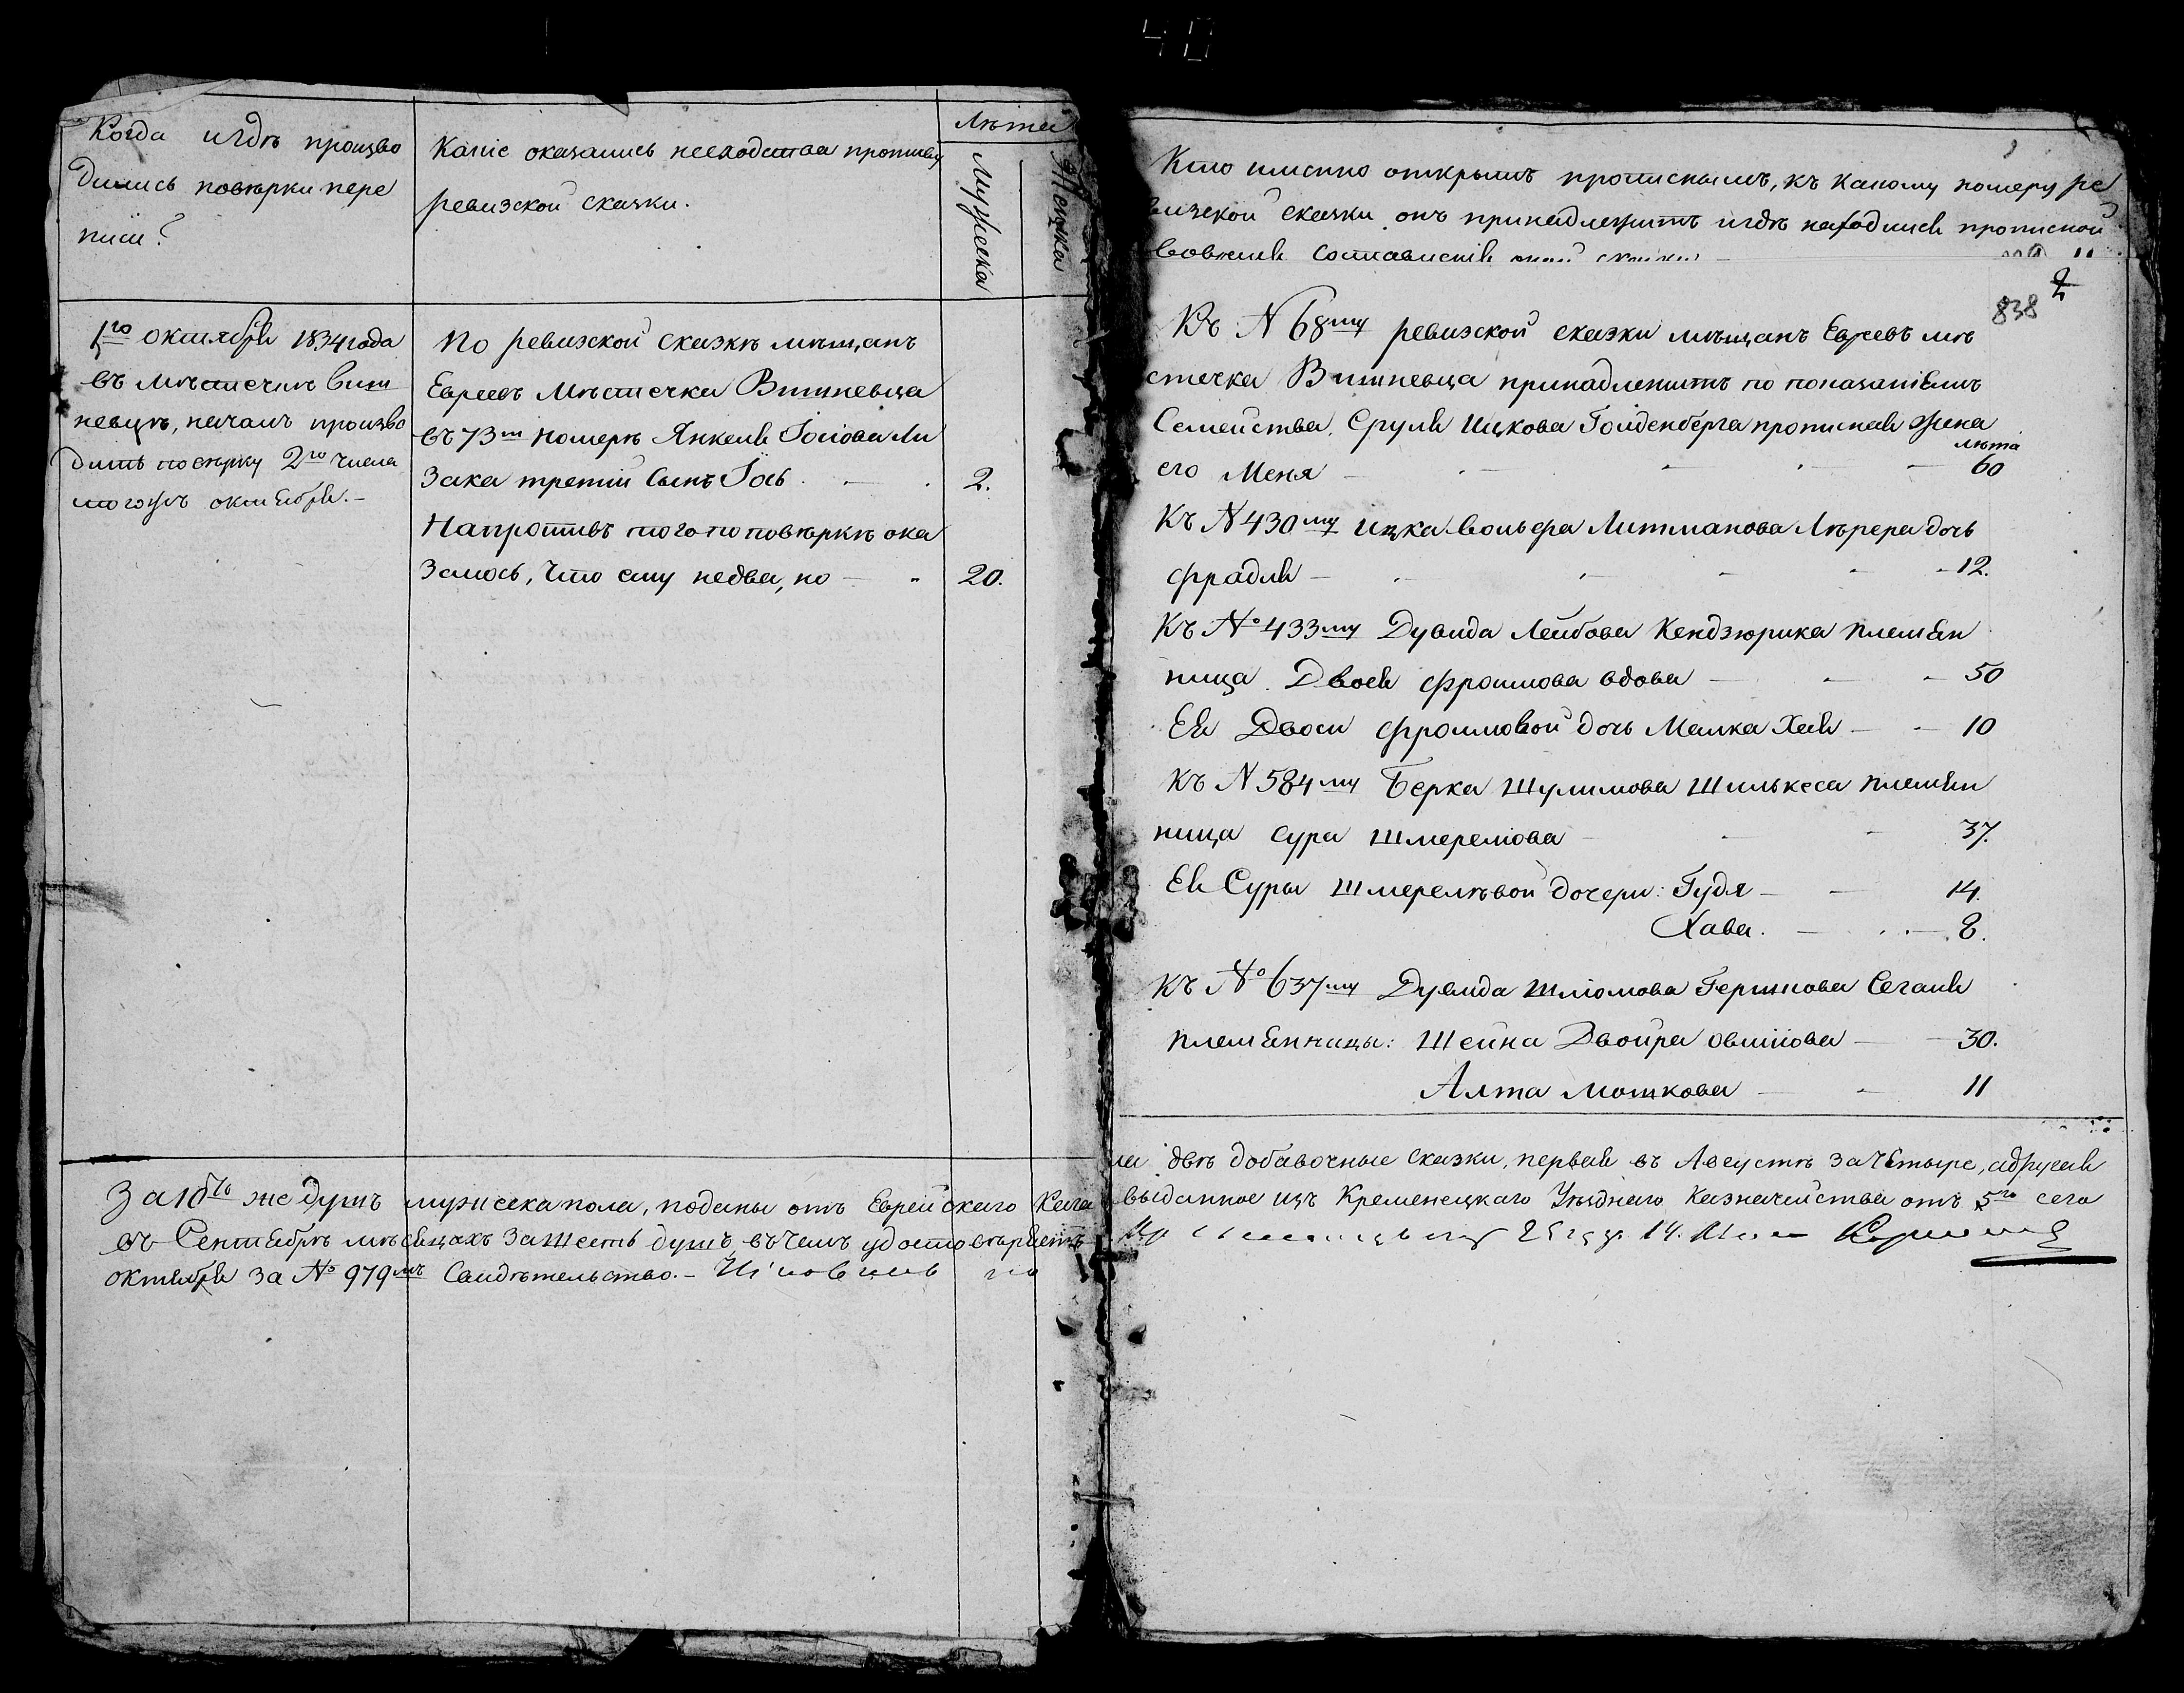 40
Когда и гдѣ произво
дились повѣрки пере
писи?
Какіе оказались несходства противу
ревизской сказки.
Лѣта
Мужеска
Женска
1го октября 1834 года
въ мѣстечкѣ Виш
невцѣ, началъ произво
дить повѣрку 2го числа
тогожъ октября. –
По ревизской сказкѣ мѣщанъ
Евреевъ Мѣстечка Вишневца
въ 73м номерѣ Янкеля Іосіова Ли
зака третій сынъ Іось 2.
Напротивъ того по повѣркѣ ока
залось, что ему не два, но 20.
Кто именно открытъ прописнымъ, къ какому номеру ре
визской сказки онъ принадлежитъ и гдѣ находился прописной
вовремя составленія оной сказки
838
2
Къ N 68му ревизской сказки мѣщанъ Евреевъ мѣ
стечка Вишневца принадлежитъ по показаніямъ
Семейства, Сруля Ицкова Голденберга прописная жена
лѣта
его Меня 60
Къ N 430му Ицка Вольфа Литманова Лѣрера дочь
Фрадля 12.
Къ № 433му Дувида Лейбова Кендзюрика племян
ница Двося Фроимова вдова 50
Ея Двоси Фроимовой дочь Малка Хая 10
Къ N 584му Берка Шулимова Шилькеса племян
ница Сура Шмерелюва 37.
Ея Суры Шмерелѣвой дочери: Гудя 14.
Хава. 8.
Къ № 637му Дувида Шліомова Гершкова Сегаля
племянницы: Шейна Двойра Овшіова 30.
Алта Мошкова 11
За 10ть же душъ мужеска пола, поданы отъ Еврейскаго Кага
ла двѣ добавочные сказки, первая въ Августѣ за четыре, адругая
въ Сентябрѣ мѣсяцахъ за шесть душъ, въ чемъ удостовѣряетъ
выданное изъ Кременецкаго Уѣзднаго Казначейства отъ 5го сего
октября за № 979мъ Свидѣтельство. –